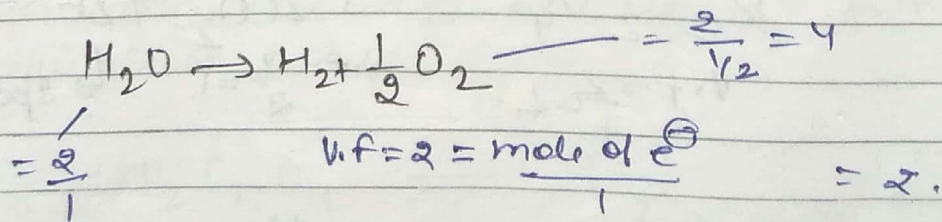 H₂O → H₂ + 1/2 O₂ — = 2/(1/2) = 4
= 2/1 V.f = 2 = mole of e⊖/1 = 2.